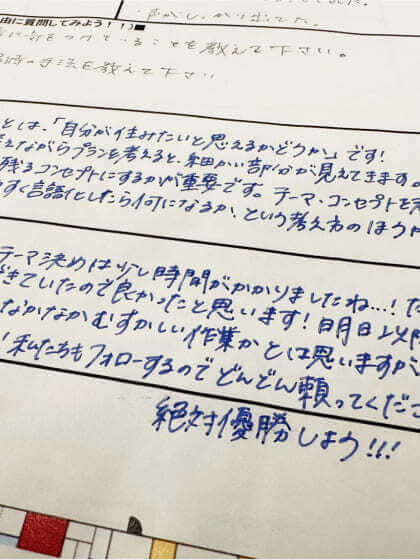 声がしっかり出てた。
由に質問してみよう！！)■
をつけていることを教えて下さい。
の手法を教えて下さい
とは、「自分が住みたいと思えるかどうか」です！
えながらプランを考えると、細かい部分が見えてきますの
残るコンセプトにするかが重要です。テーマ・コンセプトを
すく言語化したら何になるか、という考え方のほうが
テーマ決めは少し時間がかかりましたね…！た
きていたので良かったと思います！明日以
なかなかむずかしい作業かとは思いますが
！私たちもフォローするのでどんどん頼ってくださ
絶対優勝しよう！！！